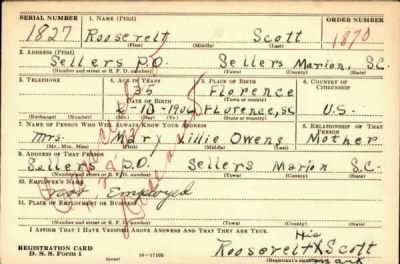 SERIAL NUMBER 1. NAME (Print) ORDER NUMBER
1827 Roosevelt Scott 1870
(First) (Middle) (Last)
2. ADDRESS (Print)
Sellers P.O. Sellers Marion, S.C.
(Number and street or R. F. D. number) (Town) (County) (State)
3. TELEPHONE 4. AGE IN YEARS 5. PLACE OF BIRTH 6. COUNTRY OF CITIZENSHIP
35 Florence
DATE OF BIRTH (Town or county)
Florence, SC U.S.
(Exchange) (Number) (Mo.) (Day) (Yr.) (State or country)
7. NAME OF PERSON WHO WILL ALWAYS KNOW YOUR ADDRESS 8. RELATIONSHIP OF THAT PERSON
Mrs. Mary Lillie Owens Mother
(Mr., Mrs., Miss) (First) (Middle) (Last)
9. ADDRESS OF THAT PERSON
Sellers P.O. Sellers Marion S.C.
(Number and street or R. F. D. number) (Town) (County) (State)
10. EMPLOYER'S NAME
Not Employed
11. PLACE OF EMPLOYMENT OR BUSINESS
(Number and street or R. F. D. number) (Town) (County) (State)
I AFFIRM THAT I HAVE VERIFIED ABOVE ANSWERS AND THAT THEY ARE TRUE.
His
REGISTRATION CARD Roosevelt X Scott
D. S. S. Form 1 16—17105 mark